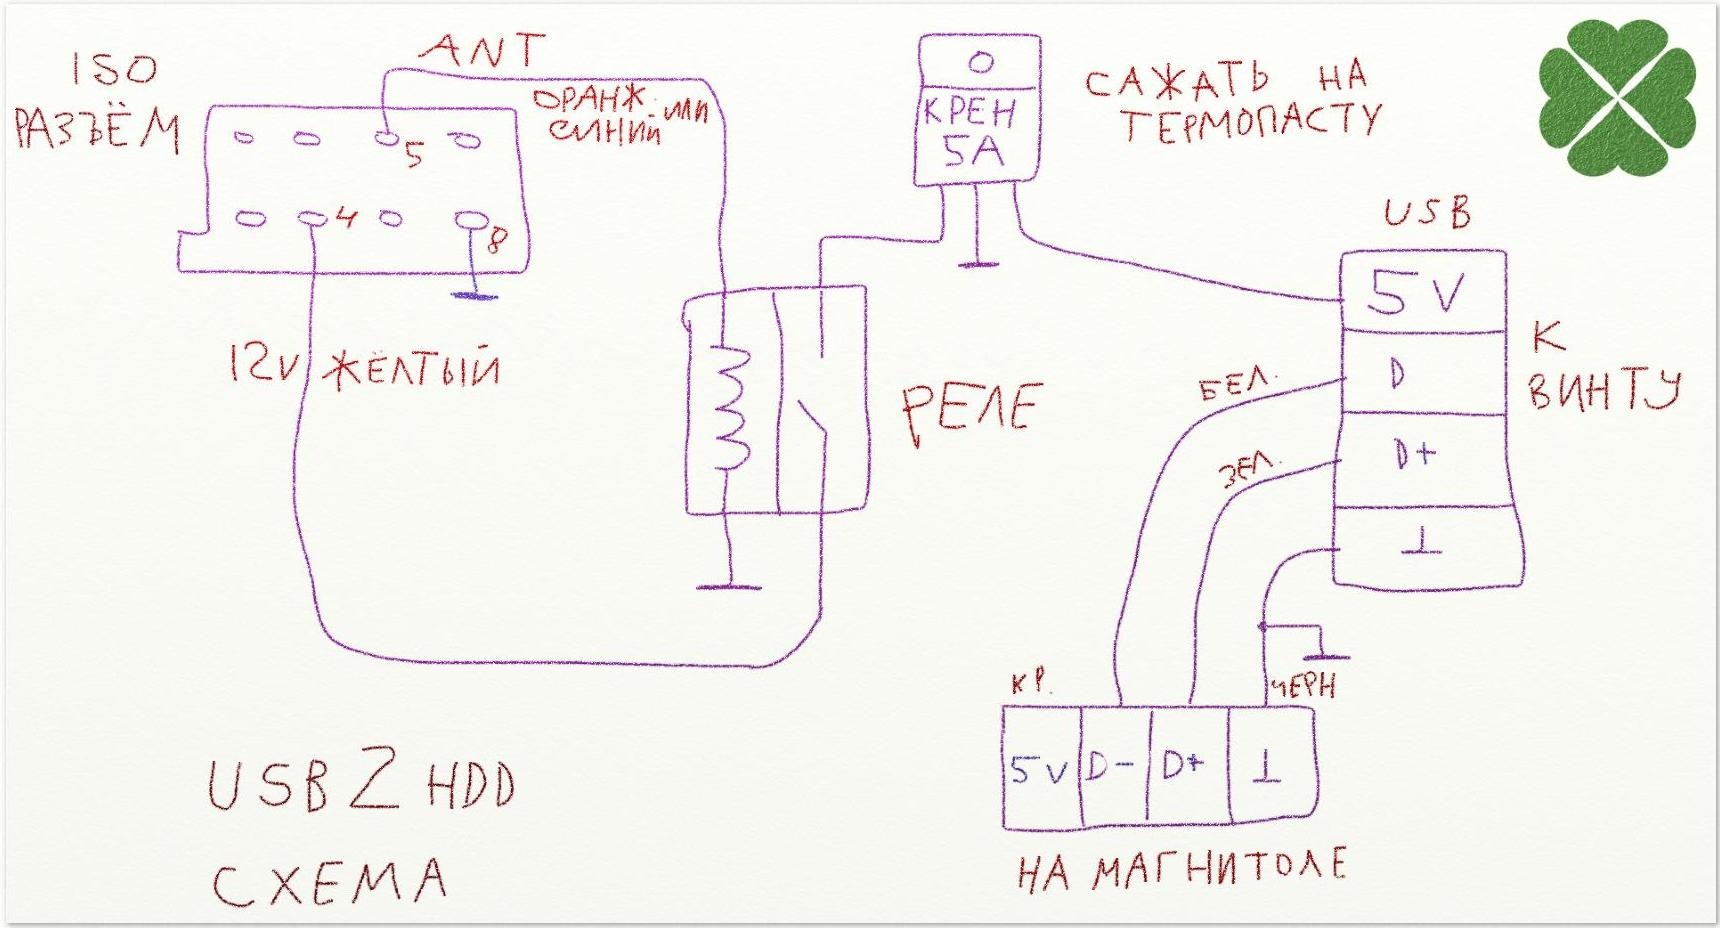 ISO
РАЗЪЁМ
ANT
ОРАНЖ. ИЛИ
СИНИЙ
5
4
8
12V ЖЁЛТЫЙ
КРЕН
5А
САЖАТЬ НА
ТЕРМОПАСТУ
РЕЛЕ
USB
5V
D
D+
⊥
К
ВИНТУ
БЕЛ.
ЗЕЛ.
КР.
ЧЕРН
5V D- D+ ⊥
НА МАГНИТОЛЕ
USB 2 HDD
СХЕМА